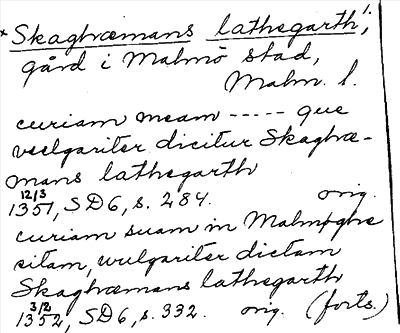 *Skaghæmans lathegarth!,
gård i Malmö stad,
Malm. l.
curiam meam ----- que
vulgariter dicitur Skaghæ-
mans lathegarth
12/3
1351, SD6, s. 284. orig.
curiam suam in Malmøghe
sitam, wulgariter dictam
Skaghæmans lathegarth
3/2
1352, SD6, s. 332. orig. (forts.)